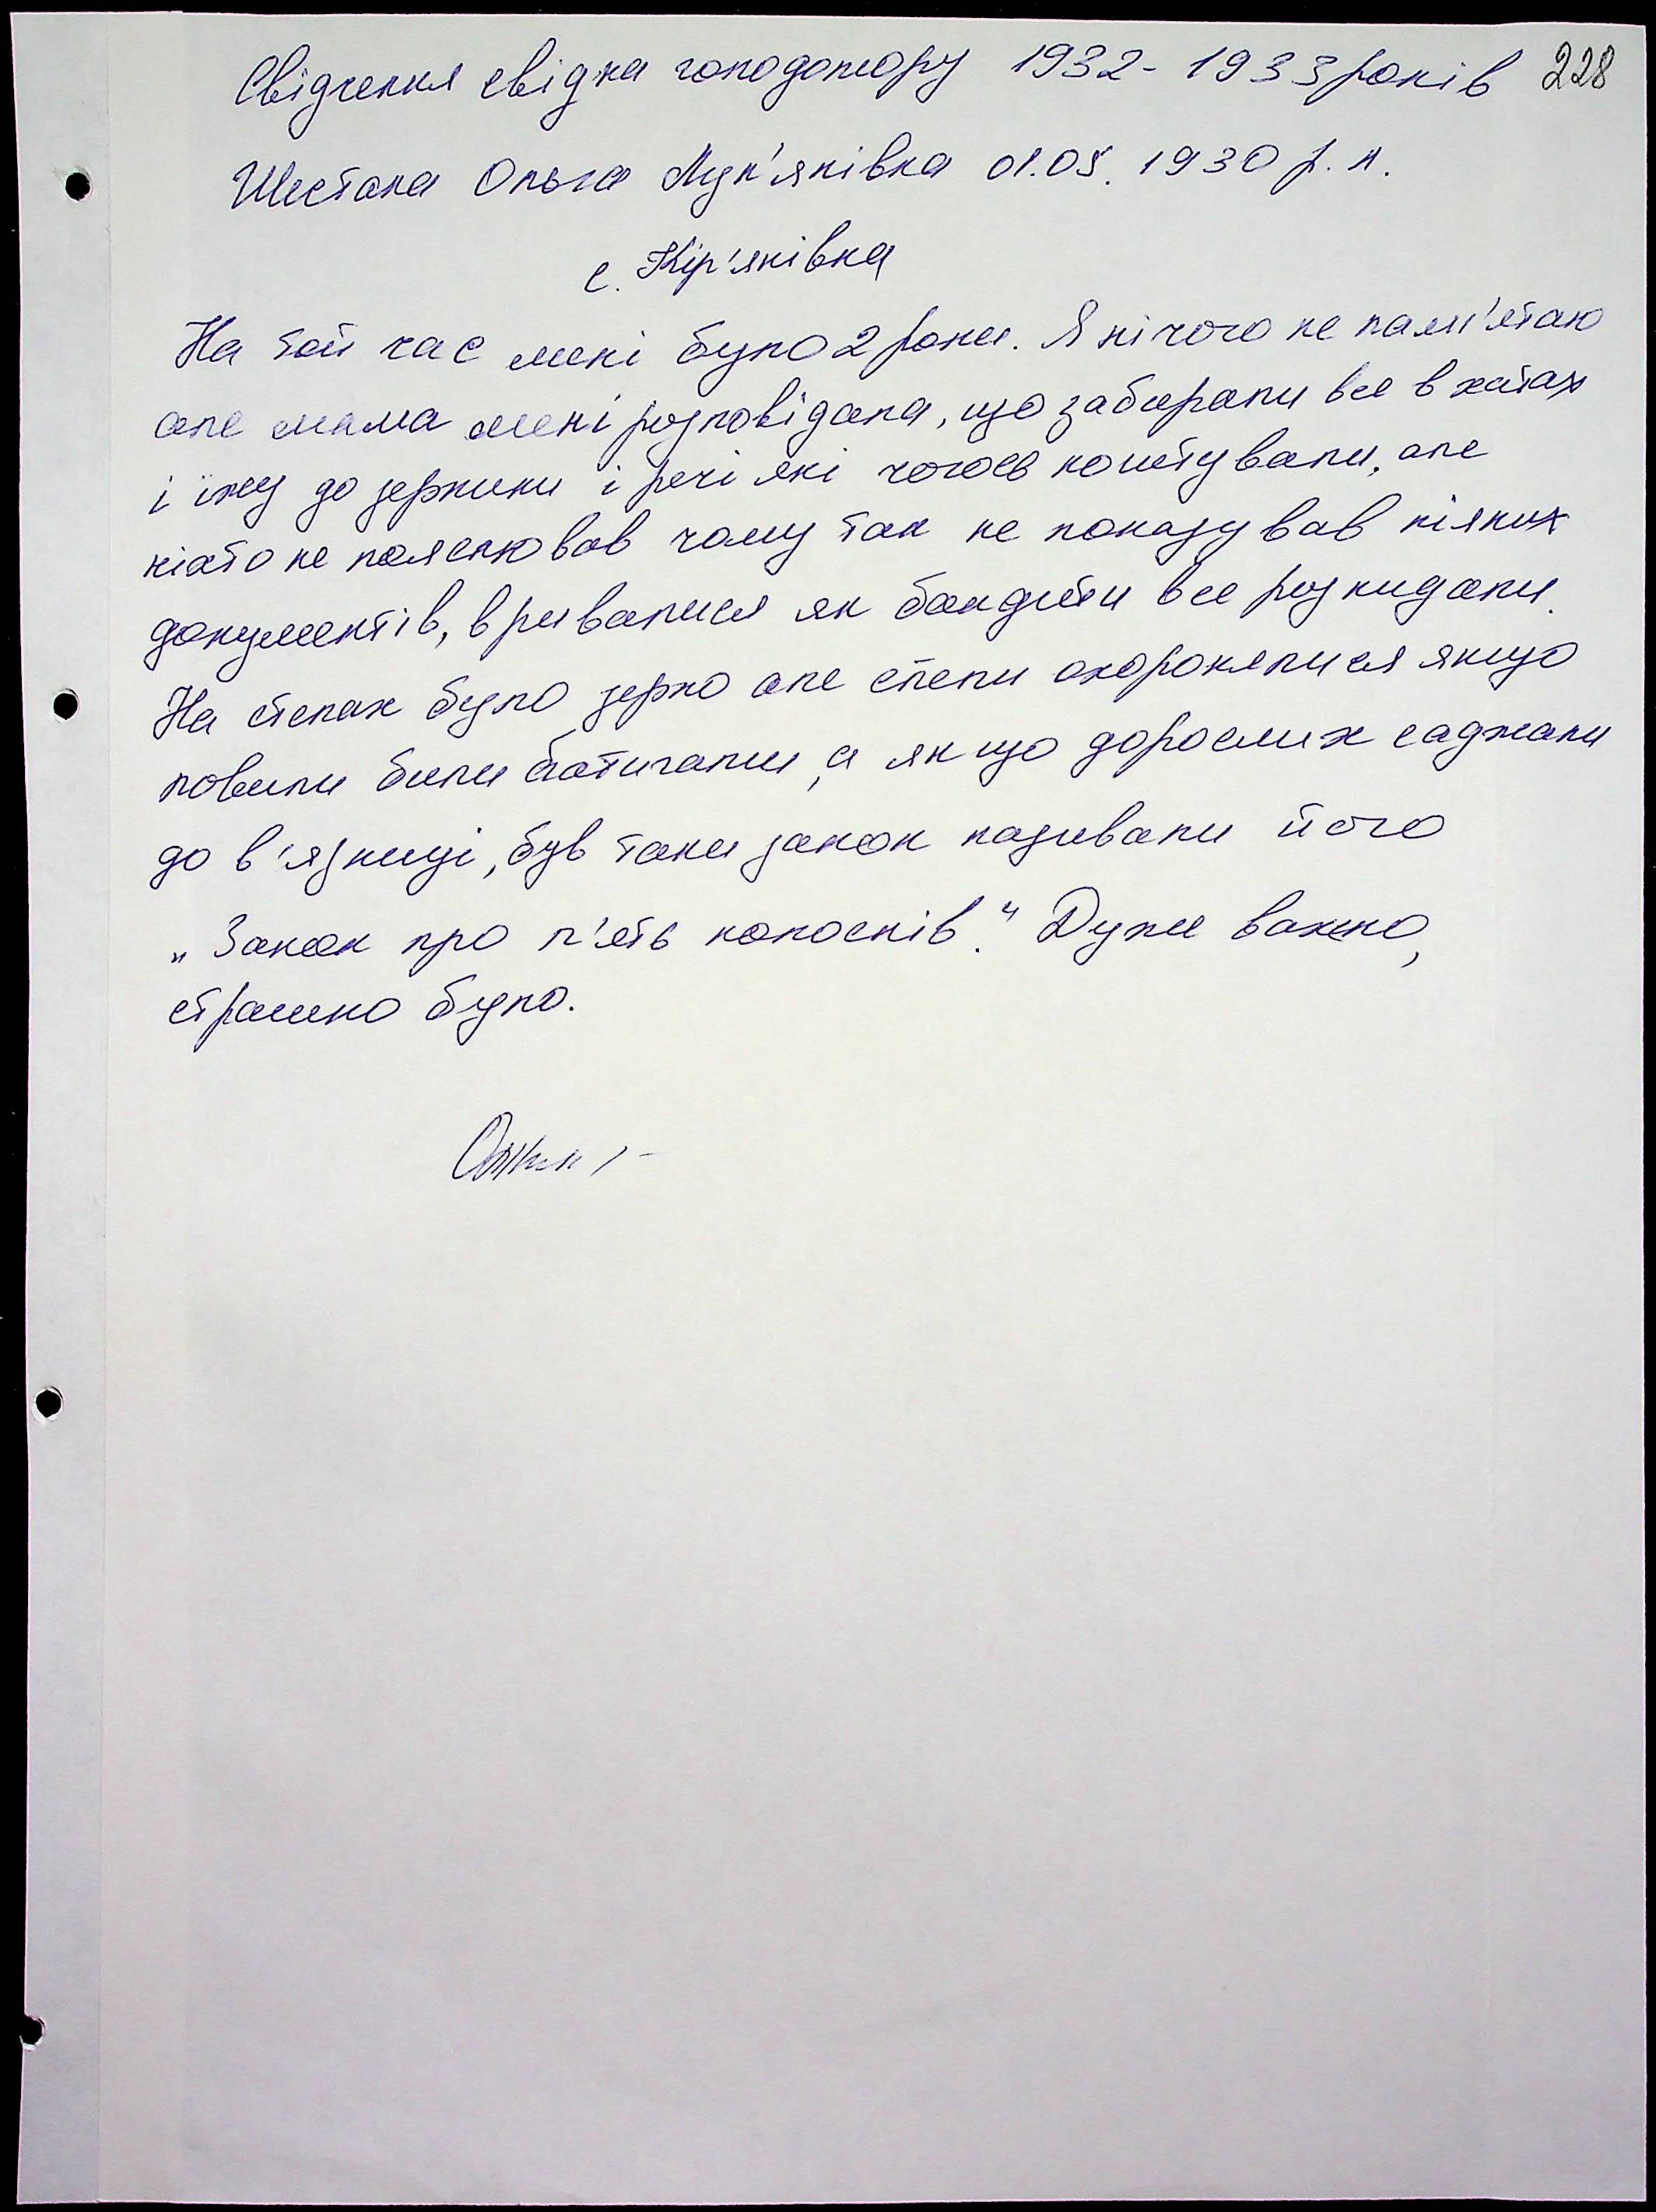 Свідчення свідка голодомору 1932-1933 років 228
Шестака Ольга Лук'янівна 01.05.1930 р.н.
с. Кір'яківка
На той час мені було 2 роки. Я нічого не пам'ятаю
але мама мені розповідала, що забирали все в хатах
і їжу до зернини і речі які чогось коштували, але
ніхто не пояснював чому так не показував ніяких
документів, вривалися як бандити все розкидали.
На степах було зерно але степи охоронялися якщо
ловили били батигами, а якщо дорослих саджали
до в'язниці, був таки закон називали його
„Закон про п'ять колосків." Дуже важко,
страшно було.